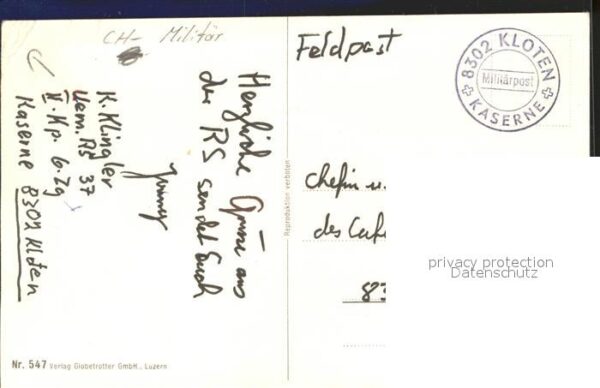 CH- Militär
Herzliche Grüsse aus
der RS sendet Euch
K. Klingler
Uem. RS 37
II. Kp. 6. Zg
Kaserne 8302 Kloten
Nr. 547 Verlag Globetrotter GmbH., Luzern
Reproduktion verboten
Feldpost
8302 KLOTEN
Militärpost
KASERNE
Chefin u.
des Cafe
83
privacy protection
Datenschutz